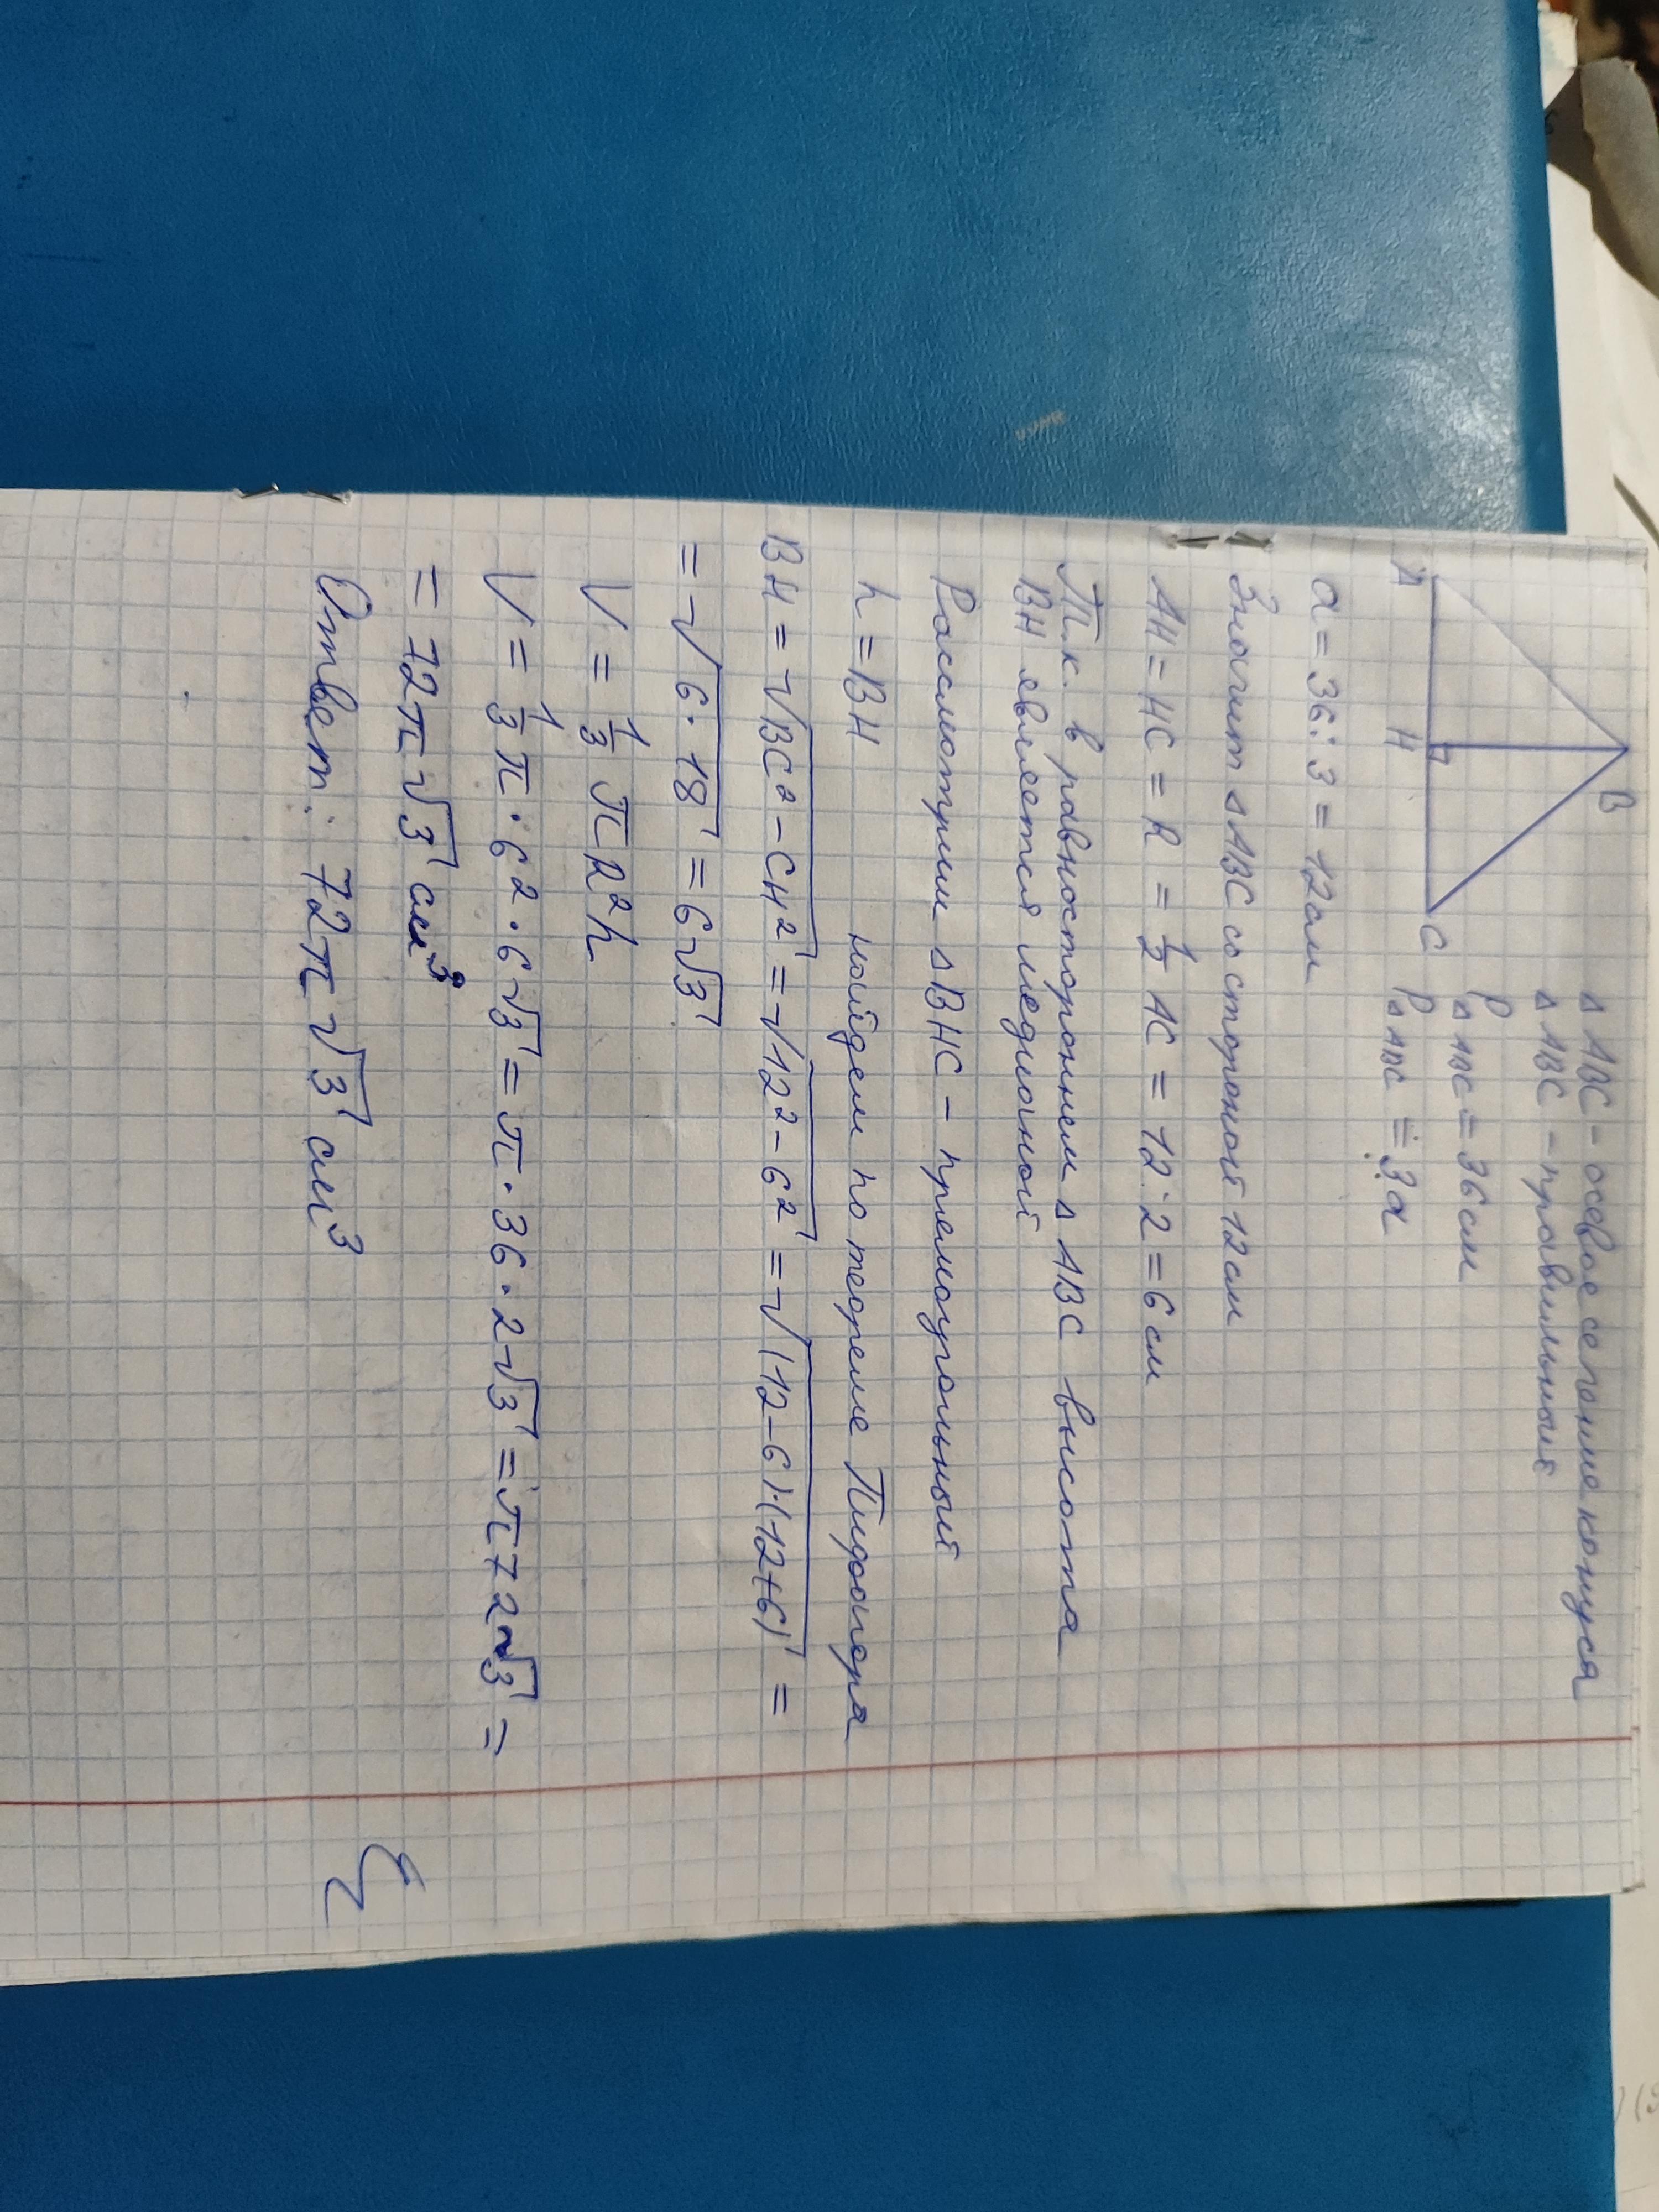 B
A
H
C
Δ ABC - осевое сечение конуса
Δ ABC - правильный
P Δ ABC = 36 см
P Δ ABC = 3a
a = 36 : 3 = 12 см
Значит Δ ABC со стороной 12 см
AH = HC = R = 1/2 AC = 12 : 2 = 6 см
Т.к. в равностороннем Δ ABC высота
BH является медианой
Рассмотрим Δ BHC - прямоугольный
h = BH найдем по теореме Пифагора
BH = √BC² - CH² = √12² - 6² = √(12-6)·(12+6) =
= √6·18 = 6√3
V = 1/3 π R² h
V = 1/3 π · 6² · 6√3 = π · 36 · 2√3 = π 72√3 =
= 72π√3 см³
Ответ: 72π√3 см³